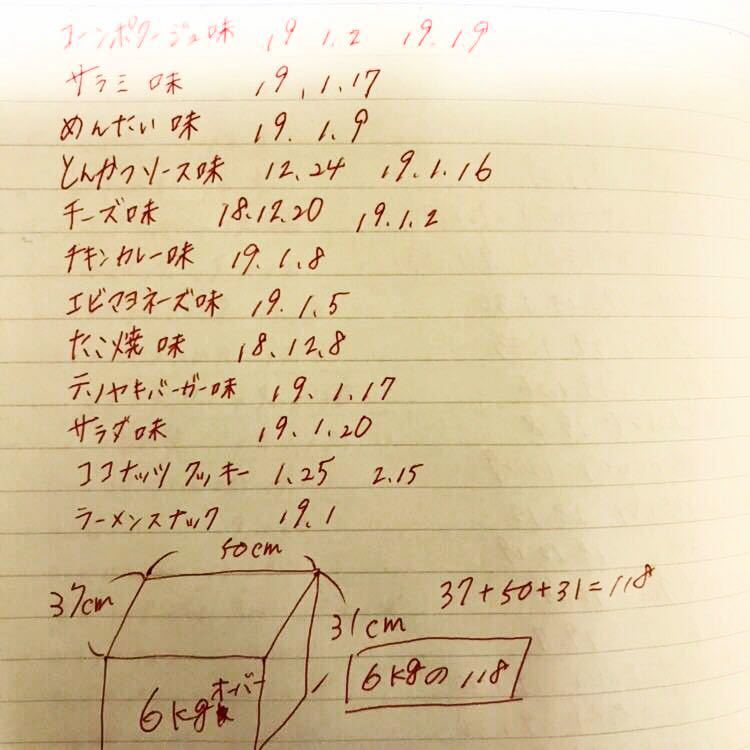 コーンポタージュ味 19 1.2 19.1.9
サラミ味 19.1.17
めんたい味 19.1.9
とんかつソース味 12.24 19.1.16
チーズ味 18.12.20 19.1.2
チキンカレー味 19.1.8
エビマヨネーズ味 19.1.5
たこ焼味 18.12.8
テリヤキバーガー味 19.1.17
サラダ味 19.1.20
ココナッツクッキー 1.25 2.15
ラーメンスナック 19.1
50cm
37cm
37+50+31=118
31cm
6kgの118
オーバー
6kg